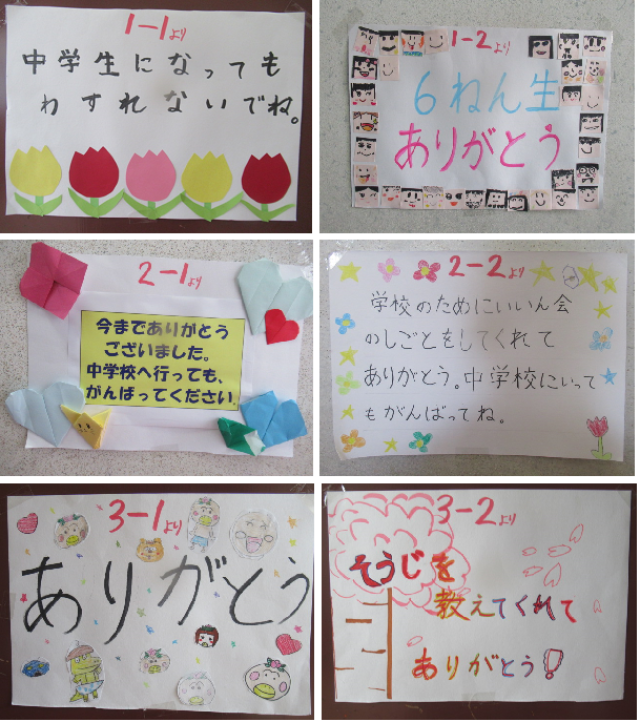 1-1より
中学生になっても
わすれないでね。
1-2より
6ねん生
ありがとう
2-1より
今までありがとう
ございました。
中学校へ行っても、
がんばってください
2-2より
学校のためにいいん会
のしごとをしてくれて
ありがとう。中学校にいって
もがんばってね。
3-1より
ありがとう
3-2より
そうじを
教えてくれて
ありがとう!